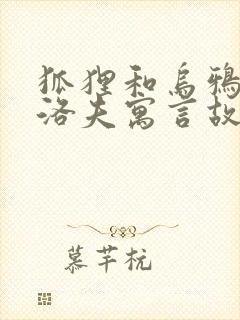 狐狸和乌鸦
洛夫寓言故
慕芊杭